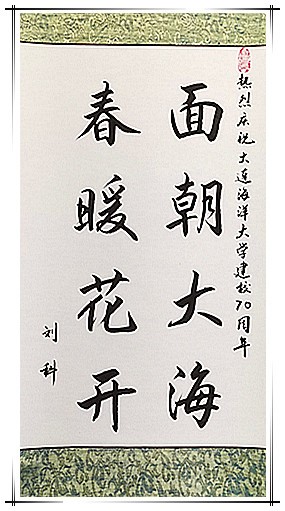 热烈庆祝大连海洋大学建校70周年
面朝大海
春暖花开
刘科